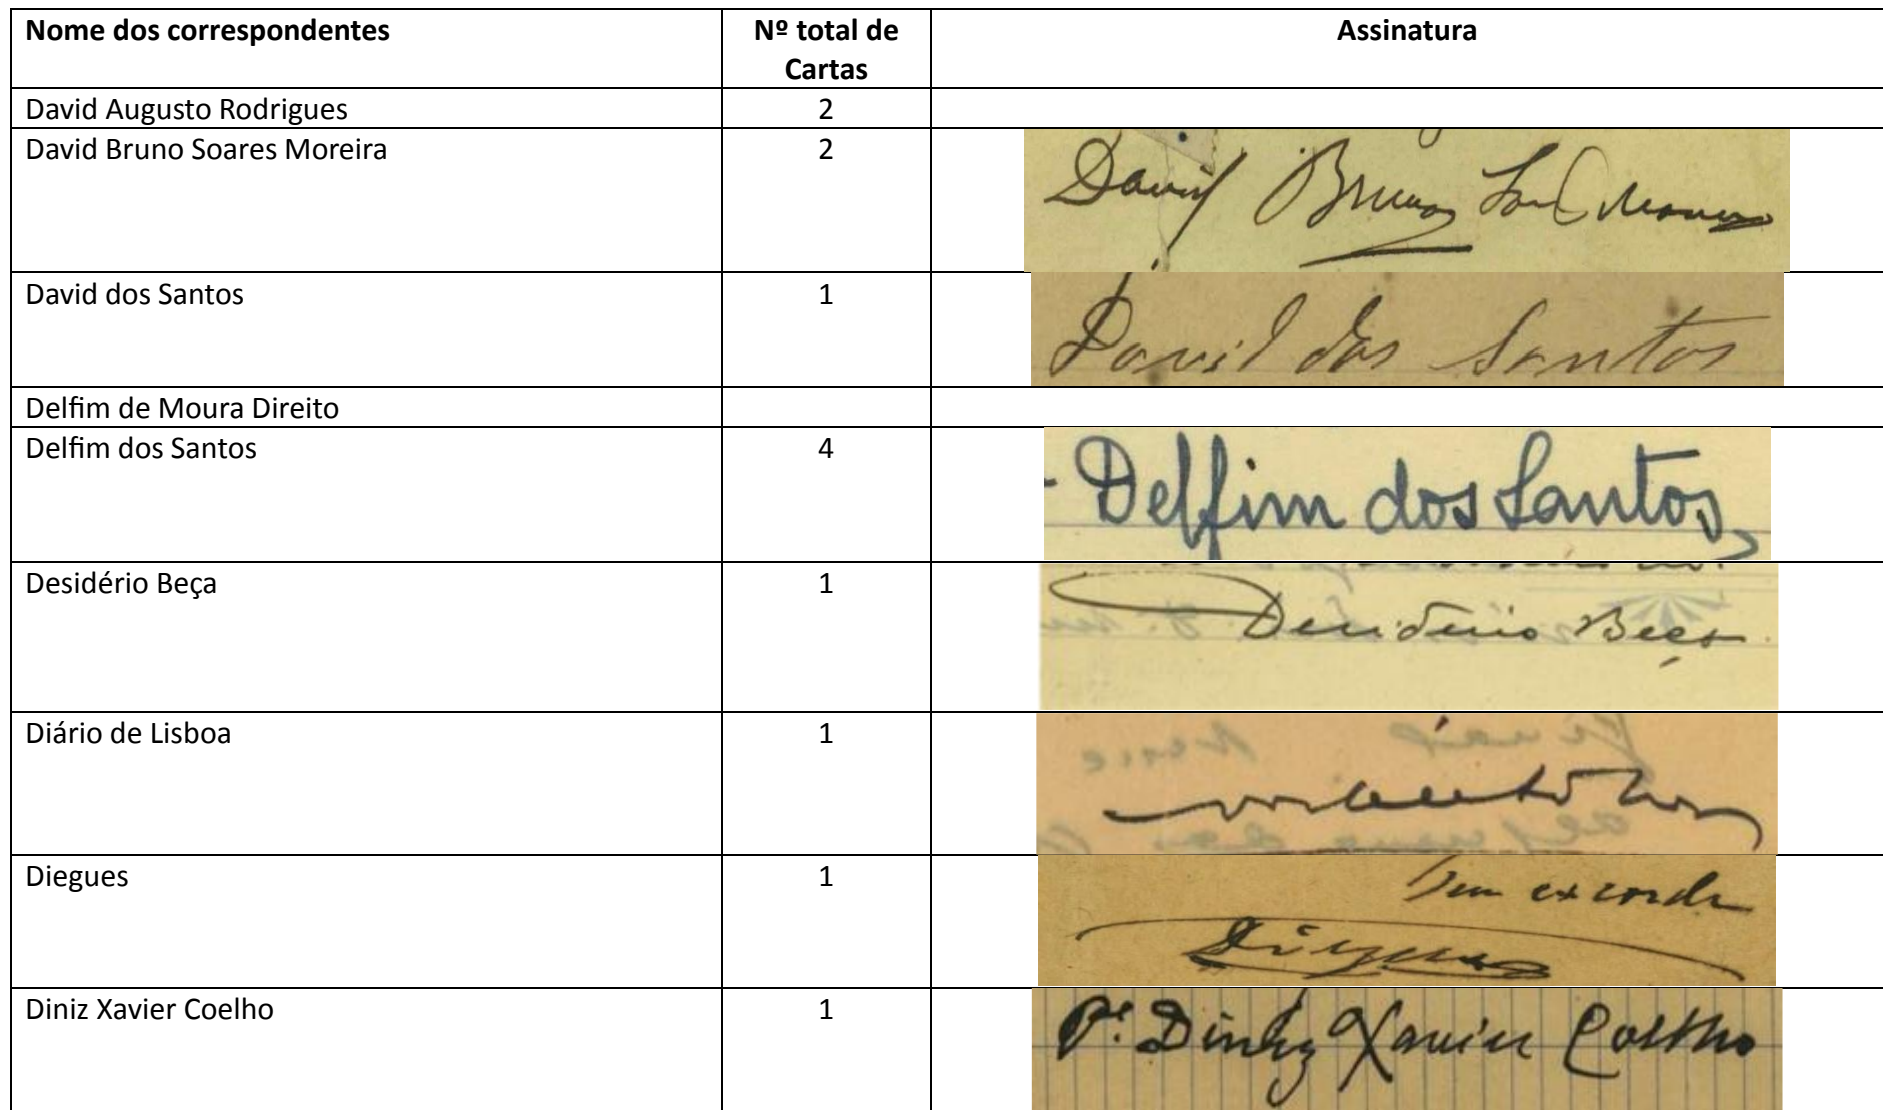 Nome dos correspondentes
Nº total de Cartas
Assinatura
David Augusto Rodrigues 2
David Bruno Soares Moreira 2
David Bruno
David dos Santos 1
David dos Santos
Delfim de Moura Direito
Delfim dos Santos 4
Delfim dos Santos,
Desidério Beça 1
Desiderio Beça
Diário de Lisboa 1
Diegues 1
ex corde
Diegues
Diniz Xavier Coelho 1
Pe. Diniz Xavier Coelho